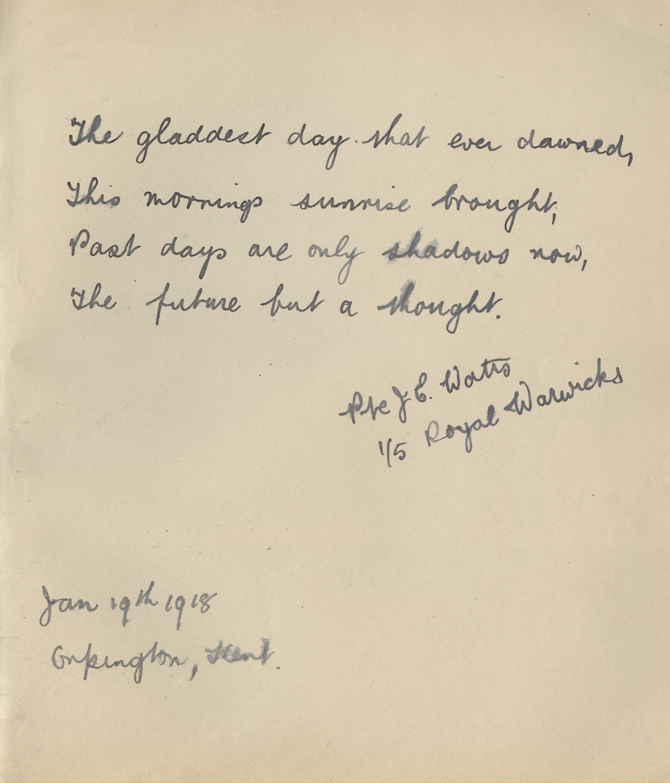 The gladdest day that ever dawned,
This mornings sunrise brought;
Past days are only shadows now,
The future but a thought.
Pte J C. Watts
1/5 Royal Warwicks
Jan 19th 1918
Orpington, Kent.